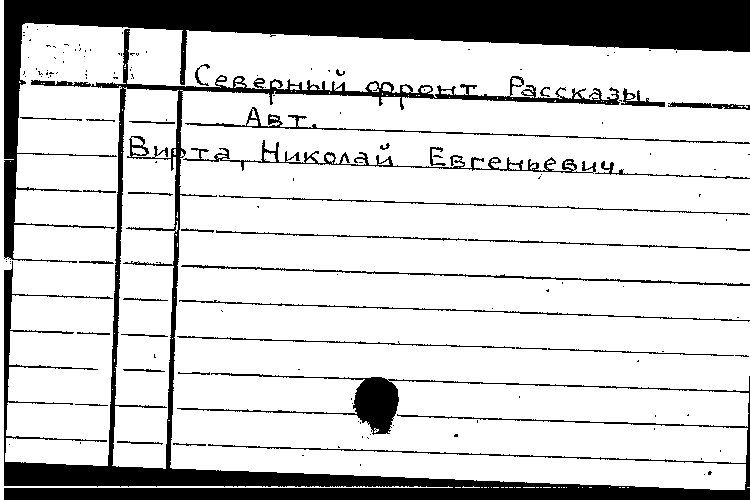 Северный фронт. Рассказы.
Авт.
Вирта, Николай Евгеньевич.